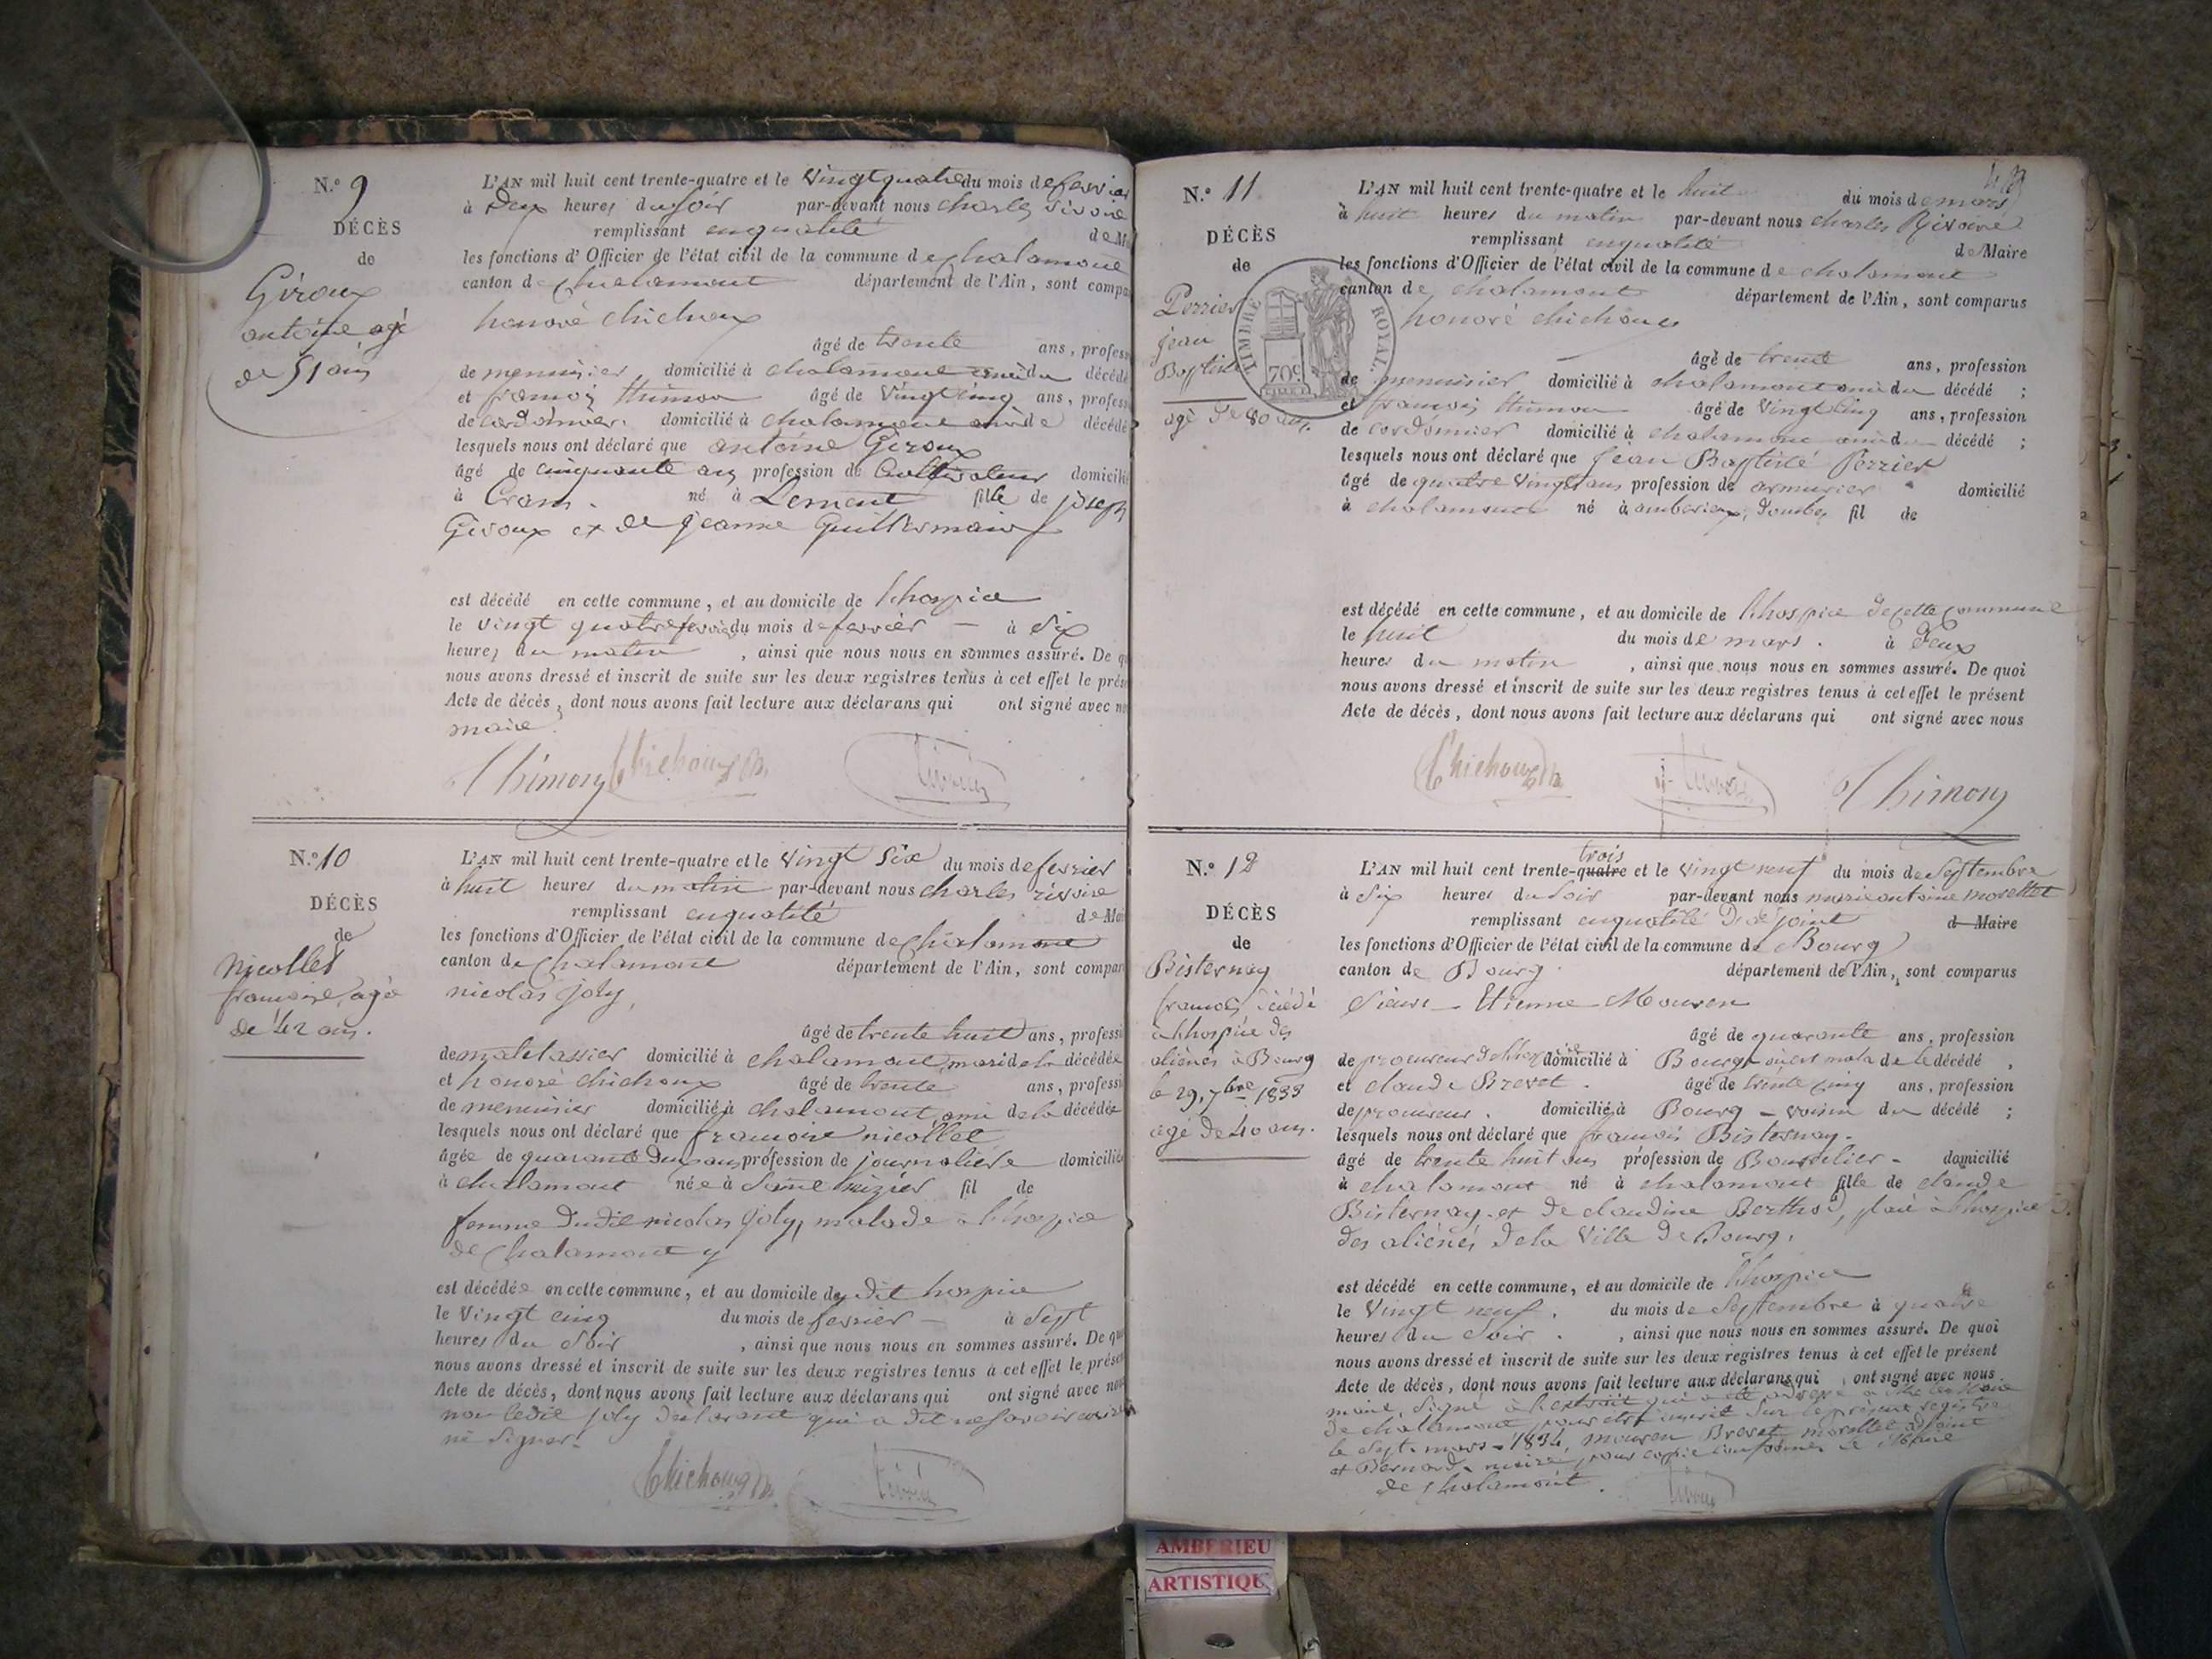 N.° 9
DÉCÈS
de
Giroux
antoine, agé
de 51 ans
L'AN mil huit cent trente-quatre et le vingt quatre du mois de fevrier
à deux heures du soir par-devant nous charles rivoire
remplissant en qualité de M
les fonctions d'Officier de l'état civil de la commune de chalamont
canton de chalamont département de l'Ain, sont compa
honoré chichoux
âgé de trente ans, profess
de menuisier, domicilié à chalamont ami du décédé
et françois thimon âgé de vingt cinq ans, profess
de cordonnier. domicilié à chalamont ami de décédé
lesquels nous ont déclaré que antoine Giroux
âgé de cinquante ans profession de Cultivateur domicilié
à Crans. né à Lement fils de joseph
Giroux et de jeanne Guillermain
est décédé en cette commune, et au domicile de l'hospice
le vingt quatre du mois de fevrier à Six
heures du matin, ainsi que nous nous en sommes assuré. De q
nous avons dressé et inscrit de suite sur les deux registres tenus à cet effet le prés
Acte de décès, dont nous avons fait lecture aux déclarans qui ont signé avec n
maire.
Thimon Chichoux
N.° 10
DÉCÈS
de
Nicollet
françoise, agée
de 42 ans.
L'AN mil huit cent trente-quatre et le vingt Six du mois de fevrier
à huit heures du matin par-devant nous charles rivoire
remplissant en qualité de Mai
les fonctions d'Officier de l'état civil de la commune de Chalamont
canton de Chalamont département de l'Ain, sont compar
nicolas joly,
âgé de trente huit ans, professi
de matelassier domicilié à chalamont, mari de la décédée
et honoré chichoux âgé de trente ans, professi
de menuisier domicilié à chalamont, ami de la décédée
lesquels nous ont déclaré que françoise nicollet
âgée de quarante deux ans profession de journaliere domiciliée
à chalamont née à fil de
femme dudit nicolas joly, malade à l'hospice
de Chalamont y
est décédée en cette commune, et au domicile du dit hospice
le vingt cinq du mois de fevrier à Sept
heures du Soir, ainsi que nous nous en sommes assuré. De qu
nous avons dressé et inscrit de suite sur les deux registres tenus à cet effet le prése
Acte de décès, dont nous avons fait lecture aux déclarans qui ont signé avec nous
non ledit joly déclarant qui a dit ne savoir écrire
ni signer.
Chichoux
N.° 11
DÉCÈS
de
Perrier
jean
Baptiste
agé de 80 ans.
TIMBRE ROYAL.
70c
L'AN mil huit cent trente-quatre et le huit du mois de mars
à huit heures du matin par-devant nous charles Rivoire
remplissant en qualité de Maire
les fonctions d'Officier de l'état civil de la commune de chalamont
canton de chalamont département de l'Ain, sont comparus
honoré chichoux
âgé de trente ans, profession
de menuisier domicilié à chalamont ami du décédé ;
et françois thimon âgé de vingt cinq ans, profession
de cordonnier domicilié à chalamont ami du décédé ;
lesquels nous ont déclaré que jean Baptiste Perrier
âgé de quatre vingt ans profession de armurier domicilié
à chalamont né à amberieux, dombes fil de
est décédé en cette commune, et au domicile de l'hospice de cette commune
le huit du mois de mars. à deux
heures du matin, ainsi que nous nous en sommes assuré. De quoi
nous avons dressé et inscrit de suite sur les deux registres tenus à cet effet le présent
Acte de décès, dont nous avons fait lecture aux déclarans qui ont signé avec nous
Chichoux Thimon
N.° 12
DÉCÈS
de
Bisternay
françois décédé
à l'hospice des
aliénés à Bourg
le 29, 7bre 1833
agé de 40 ans.
L'AN mil huit cent trente-quatre trois et le vingt neuf du mois de Septembre
à Six heures du Soir par-devant nous marie antoine morellet
remplissant en qualité d'adjoint de Maire
les fonctions d'Officier de l'état civil de la commune de Bourg
canton de Bourg. département de l'Ain, sont comparus
Sieurs Etienne Mouren
âgé de quarante ans, profession
de procureur domicilié à Bourg décédé,
et claude Brevet. âgé de trente cinq ans, profession
de procureur. domicilié à Bourg - voisin du décédé ;
lesquels nous ont déclaré que françois Bisternay.
âgé de trente huit ans profession de Bourrelier - domicilié
à chalamont né à chalamont fils de claude
Bisternay et de claudine Berthod, placé à l'hospice
des aliénés de la Ville de Bourg.
est décédé en cette commune, et au domicile de l'hospice
le vingt neuf. du mois de Septembre à quatre
heures du Soir., ainsi que nous nous en sommes assuré. De quoi
nous avons dressé et inscrit de suite sur les deux registres tenus à cet effet le présent
Acte de décès, dont nous avons fait lecture aux déclarans qui ont signé avec nous
maire, Signé à l'extrait qui a été adressé à Mr le Maire
de chalamont pour être inscrit sur le présent registre
le Sept mars 1834, mouren Brevet morellet adjoint
et Bernard, maire, pour copie conforme le Maire
de chalamont.
AMBERIEU
ARTISTIQUE